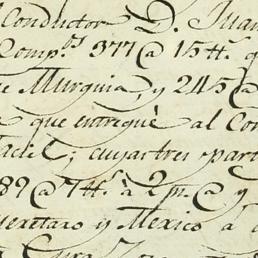 Conductor D. Juan
Comp.os 377@ 15 tt. q
e Murguia, y 245@
que entreguè al Con
aciel; cuyas tres part
89@ 7 tt. à 2 p.s @ y
ueretaro y Mexico à